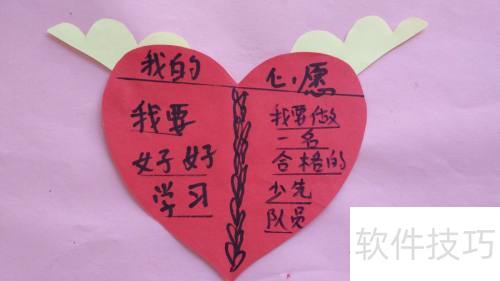 我的心愿
我要
好好
学习
我要做
一名
合格的
少先
队员
软件技巧